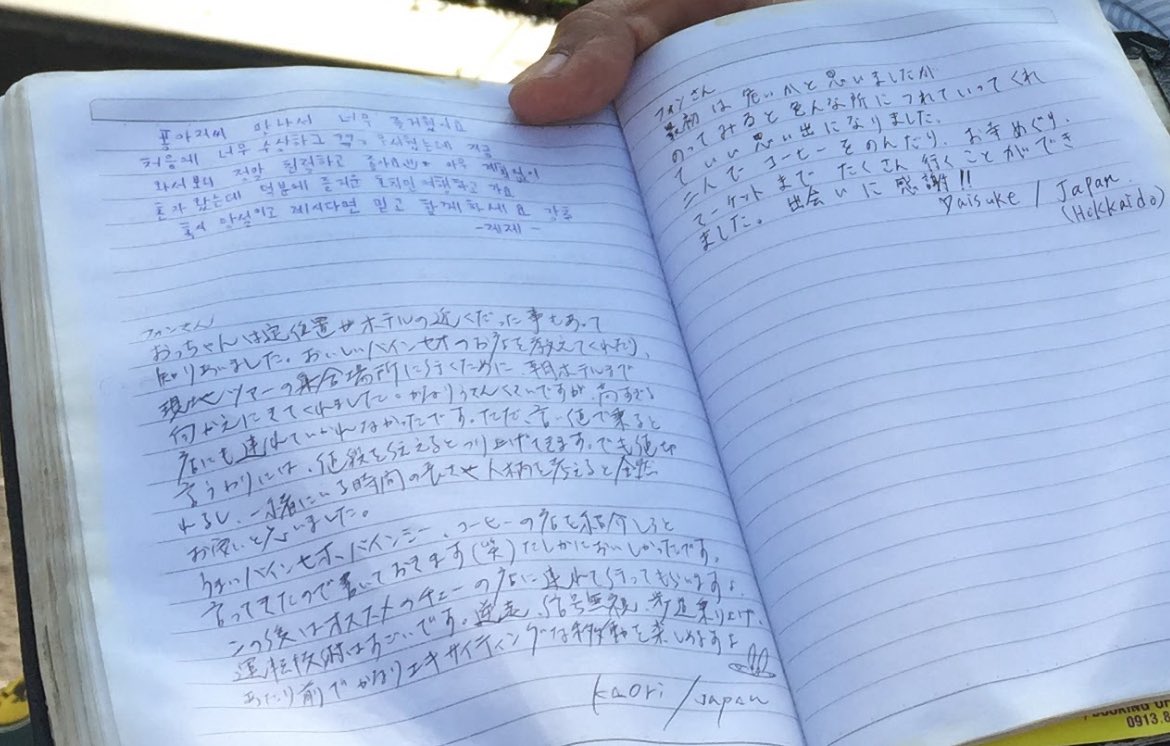 퐁아저씨 만나서 너무 즐거웠어요
처음에 너무 수상하고 조심했는데 지금
와서보니 정말 친절하고 좋아요 아무 계획없이
혼자 왔는데 덕분에 즐거운 호치민 여행하고 가요
혹시 망설이고 계시다면 믿고 함께하세요 강추
-제제-
フォンさん!
おっちゃんは定位置がホテルの近くだった事もあって
知りあいました。おいしいバインセオのお店を教えてくれたり、
現地ツアーの集合場所に行くために朝ホテルまで
向かえにきてくれました。かなりうさんくさいですが、高すぎる
店にも連れていかれなかったです。ただ、言い値で乗ると
言うわりには、値段を伝えるとつり上げてきます。でも値切
れるし、一緒にいる時間の長さや人柄を考えると全然
お安いと思いました。
うまいバインセオ、バインミー、コーヒーの店を紹介しろと
言ってきたので書いておきます(笑)たしかにおいしかったです。
この後はオススメのチェーの店に連れて行ってもらいます。
運転技術はすごいです。逆走、信号無視、歩道乗り上げ、
あたり前でかなりエキサイティングな移動を楽しめますよ
Kaori / Japan
フォンさん
最初は危いかと思いましたが
のってみると色んな所につれていってくれ
て いい思い出になりました。
二人でコーヒーをのんだり、お寺めぐり、
マーケットまで たくさん行くことができ
ました。出会いに感謝!!
Daisuke / Japan
(Hokkaido)
0913.8